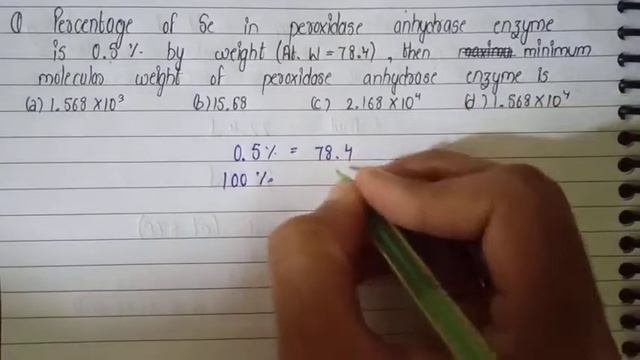 Q Percentage of Se in peroxidase anhydrase enzyme
is 0.5% by weight (At. W = 78.4), then minimum
molecular weight of peroxidase anhydrase enzyme is
(a) 1.568 × 10³ (b) 15.68 (c) 2.168 × 10⁴ (d) 1.568 × 10⁴
0.5% = 78.4
100%